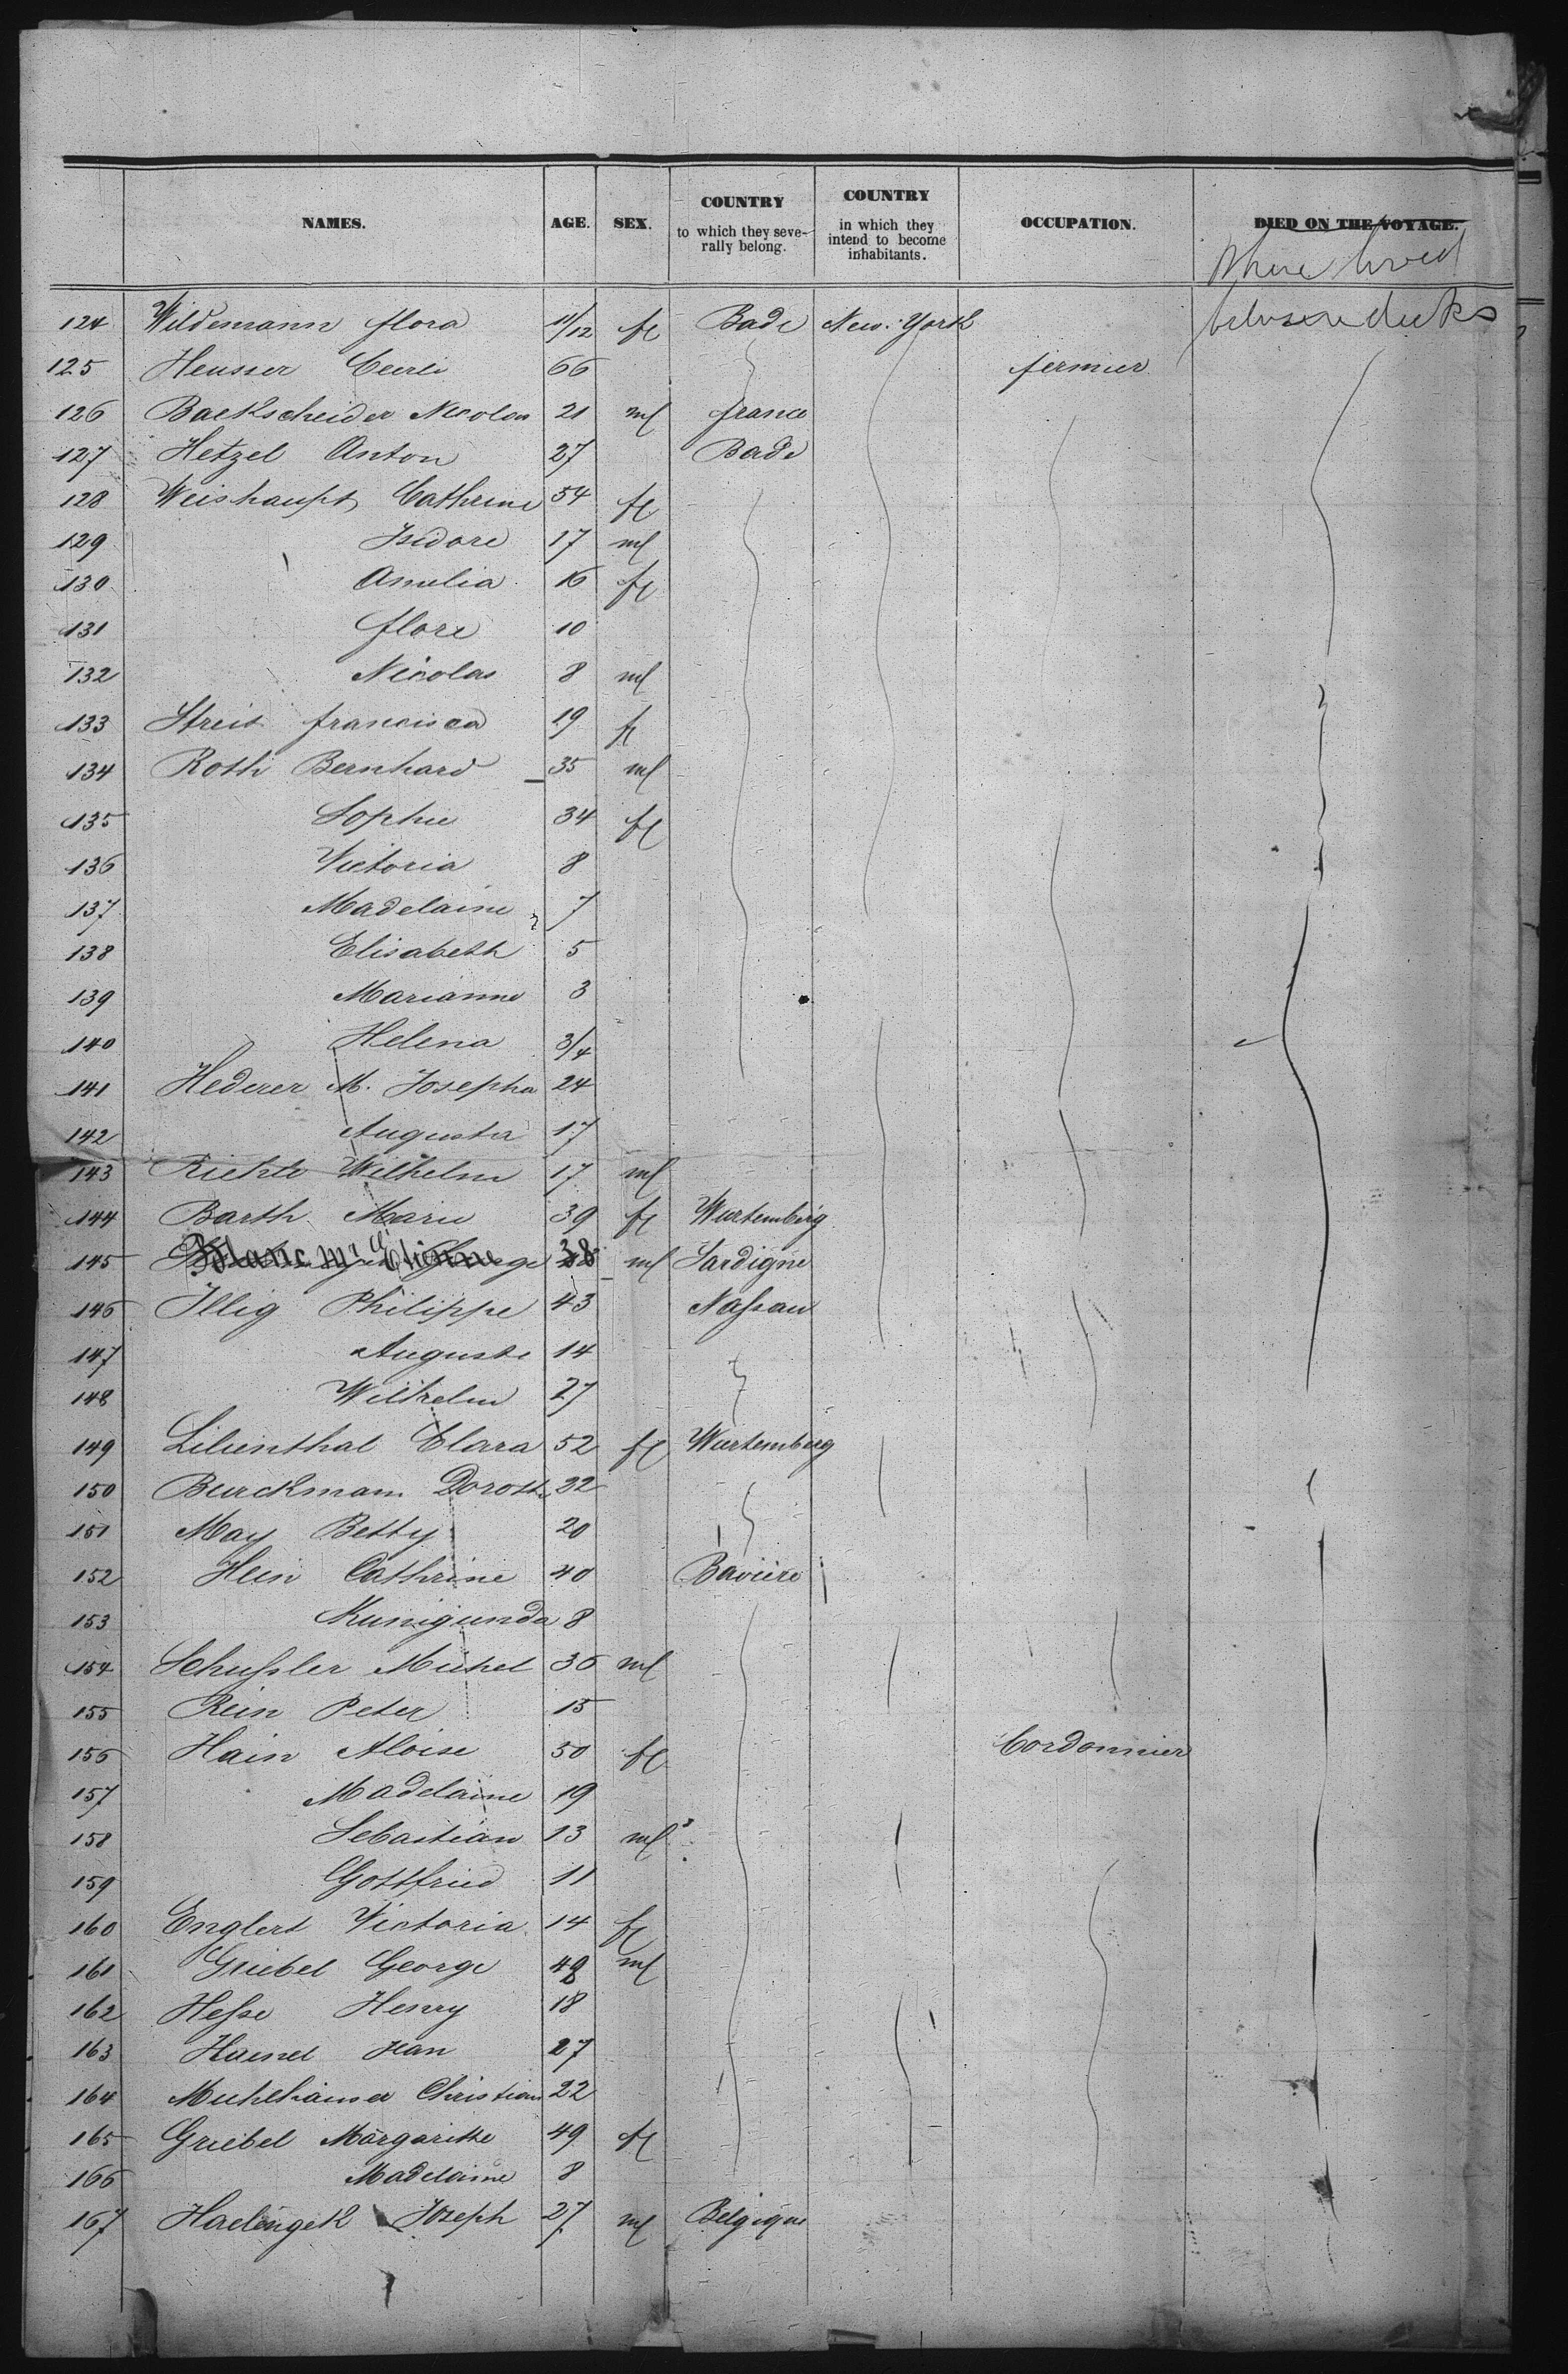 NAMES. AGE. SEX. COUNTRY to which they seve-rally belong. COUNTRY in which they intend to become inhabitants. OCCUPATION. DIED ON THE VOYAGE.
Where
124 Wildemann flora 11/12 fl Bade New-York between decks
125 Heusser 66 fermier
126 Backscheider Nicolas 21 ml france
127 Hetzel Anton 27 Bade
128 Weishaupt Cathrine 54 fl
129 Isidore 17 ml
130 Amelia 16 fl
131 flore 10
132 Nicolas 8 ml
133 Streit francisca 19 fl
134 Roth Bernhard 35 ml
135 Sophie 34 fl
136 Victoria 8
137 Madelaine 7
138 Elisabeth 5
139 Marianne 3
140 Helena 3/4
141 Hederer M. Josepha 24
142 Augusta 17
143 Riehle Wilhelm 17 ml
144 Barth Marie 39 fl Wurtemberg
145 Blanc Mr Etienne 38 ml Sardigne
146 Illig Philippe 43 Nassau
147 Auguste 14
148 Wilhelm 27
149 Lilienthal Clara 52 fl Wurtemberg
150 Burckmann Doroth
151 May Betty 20
152 Hein Cathrine 40 Baviere
153 Kunigunda 8
154 Schussler Michel 36 ml
155 Rein Peter 15
156 Hain Aloise 50 fl Cordonnier
157 Madelaine 19
158 Sebastian 13 ml
159 Gottfried 11
160 Englert Victoria 14 fl
161 Griebel George ml
162 Hesse Henry 18
163 Jean 27
164 Muhlhauser Christian 22
165 Griebel Margarithe 49 fl
166 Madelaine 8
167 Joseph 27 ml Belgique